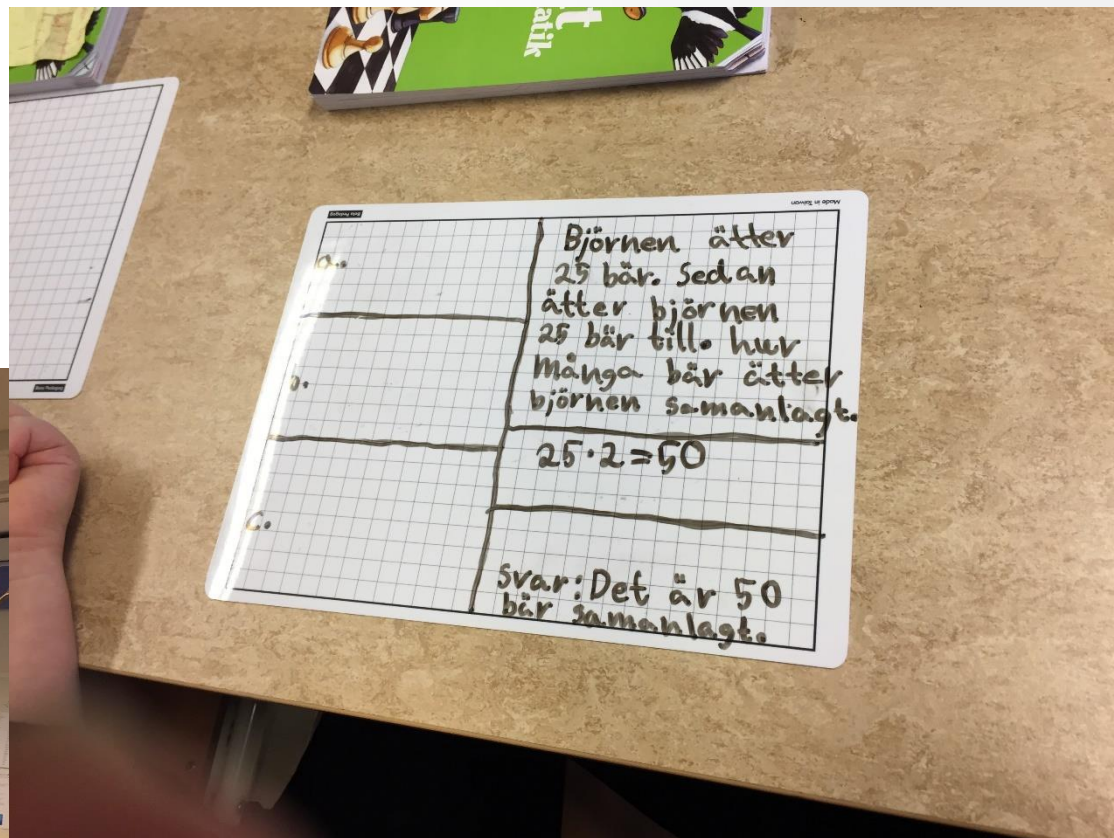 t
atik
Beta Pedagog
Made in Taiwan
Beta Pedagog
a.
b.
c.
Björnen ätter
25 bär. Sedan
ätter björnen
25 bär till. hur
många bär ätter
björnen samanlagt.
25·2=50
svar: Det är 50
bär samanlagt.